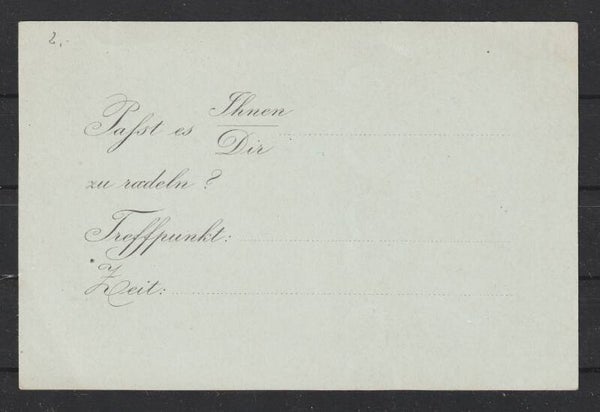 2,-
Paſst es Ihnen
Dir
zu radeln?
Treffpunkt:
Zeit: